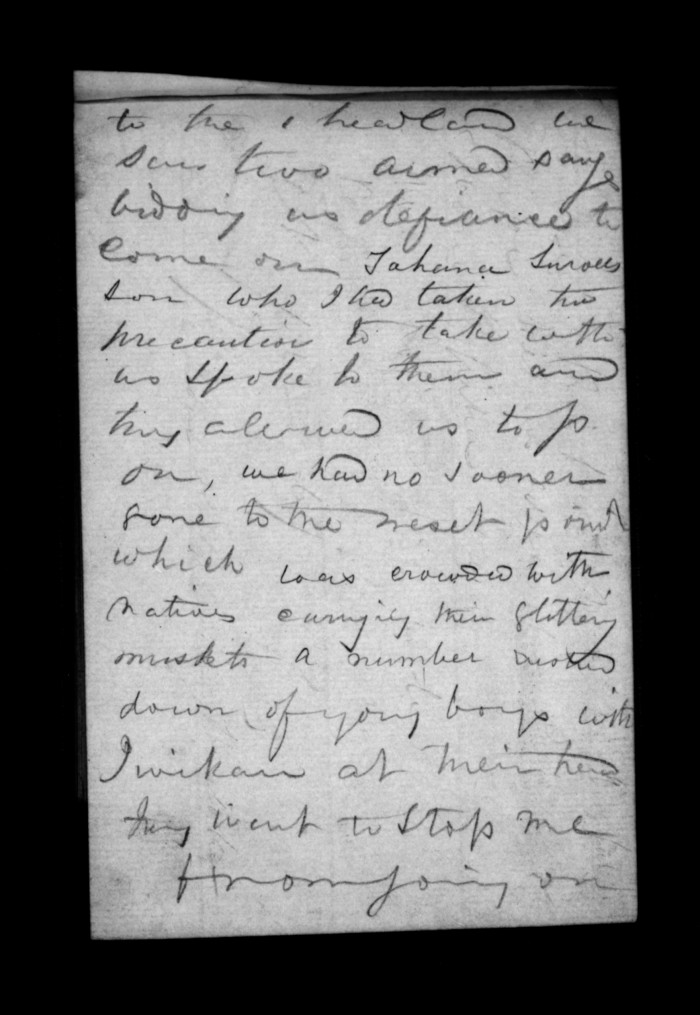 to the headland we
saw two armed savage
bidding us defiance to
come on Tahana
son who I had taken the
precaution to take with
us spoke to them and
they alowed us to go
on, we had no sooner
gone to the next point
which was crowded with
natives carrying their glittery
muskets a number rushed
down of young boys with
Iwikau at their head
they went to stop me
from going on